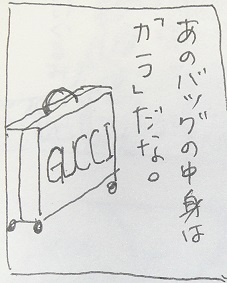 あのバッグの中身は
「カラ」だな。
GUCCI